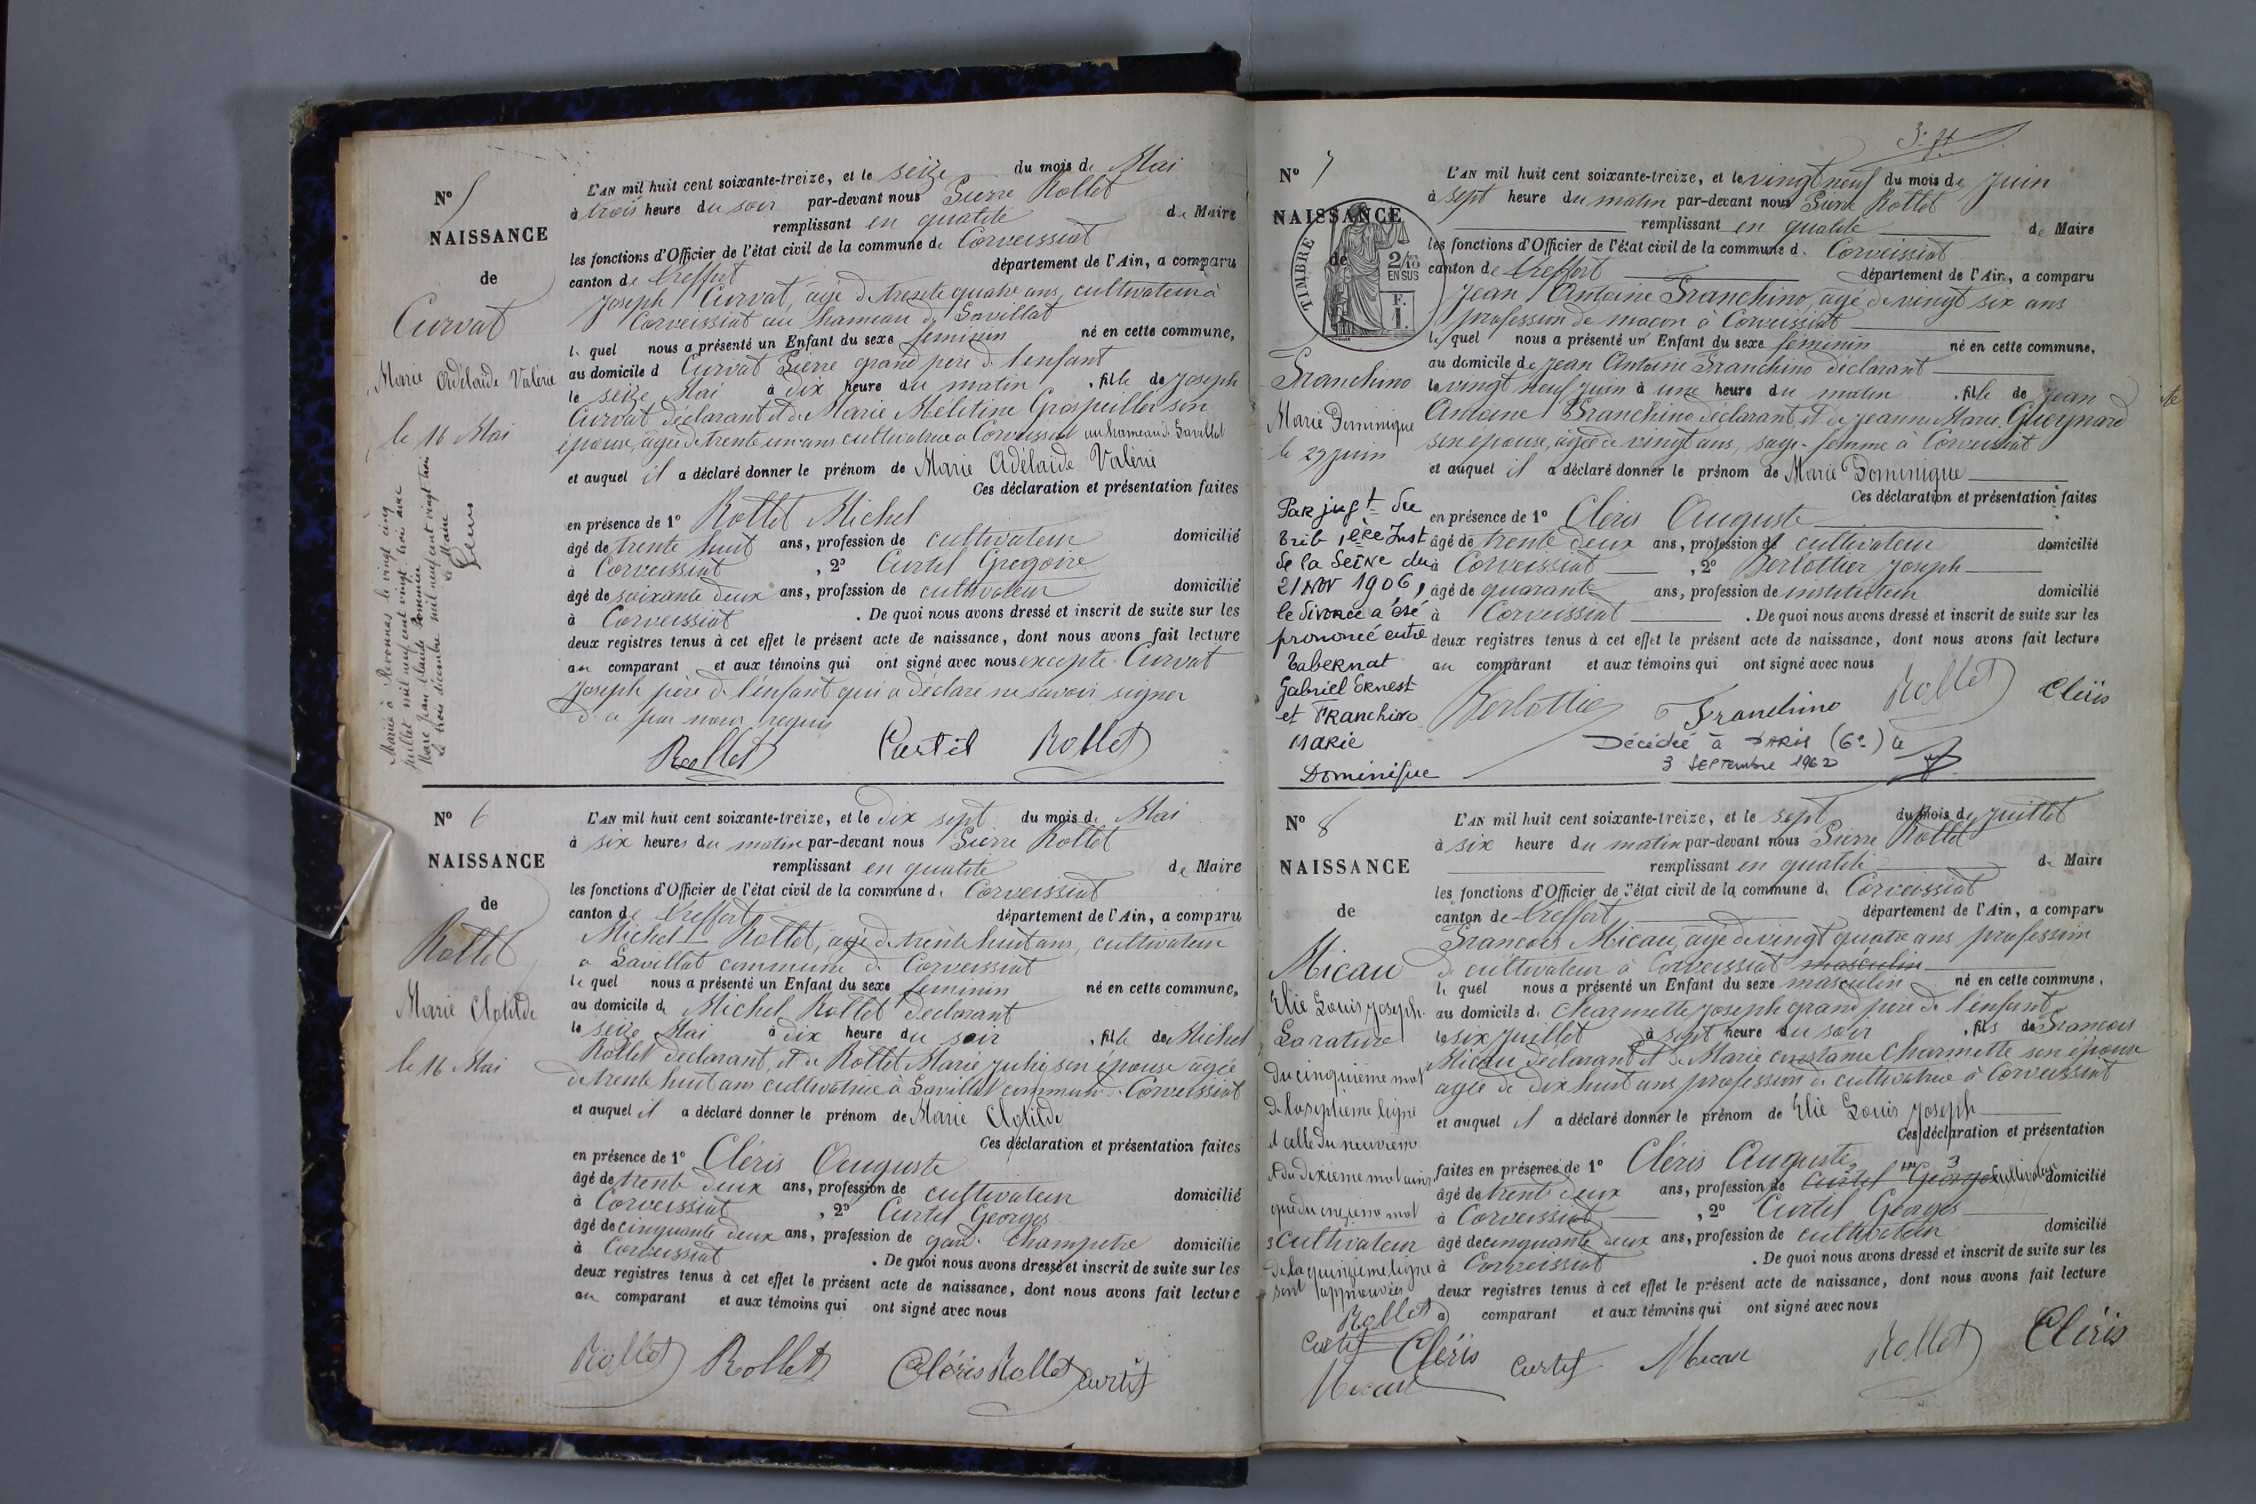 N° 5
NAISSANCE
de
Curvat
Marie Adélaïde Valérie
le 16 Mai
Marié à Revonnas le vingt cinq
juillet mil neuf cent vingt trois avec
Marc Jean Claude
Le trois décembre mil neuf cent vingt trois
Le Maire
L'AN mil huit cent soixante-treize, et le seize du mois de Mai
à trois heure du soir par-devant nous Pierre Rollet
remplissant en qualité de Maire
les fonctions d'Officier de l'état civil de la commune de Corveissiat
canton de Treffort département de l'Ain, a comparu
Joseph Curvat, âgé de trente quatre ans, cultivateur à
Corveissiat au hameau de Savillat
le quel nous a présenté un Enfant du sexe feminin né en cette commune,
au domicile d Curvat Pierre grand pere de l'enfant
le seize Mai à dix heure du matin, fille de Joseph
Curvat déclarant et de Marie Mélitine Grospellier son
épouse, âgée de trente un ans cultivatrice à Corveissiat au hameau de Savillat
et auquel il a déclaré donner le prénom de Marie Adélaide Valérie
Ces déclaration et présentation faites
en présence de 1° Rollet Michel
âgé de trente huit ans, profession de cultivateur domicilié
à Corveissiat, 2° Curtil Gregoire
âgé de soixante deux ans, profession de cultivateur domicilié
à Corveissiat. De quoi nous avons dressé et inscrit de suite sur les
deux registres tenus à cet effet le présent acte de naissance, dont nous avons fait lecture
au comparant et aux témoins qui ont signé avec nous excepté Curvat
Joseph père de l'enfant qui a déclaré ne savoir signer
de ce par nous requis
Rollet Curtil Rollet
N° 6
NAISSANCE
de
Rollet
Marie Clotilde
le 16 Mai
L'AN mil huit cent soixante-treize, et le dix sept du mois de Mai
à six heures du matin par-devant nous Pierre Rollet
remplissant en qualité de Maire
les fonctions d'Officier de l'état civil de la commune de Corveissiat
canton de Treffort département de l'Ain, a comparu
Michel Rollet, âgé de trente huit ans, cultivateur
à Savillat commune de Corveissiat
le quel nous a présenté un Enfant du sexe feminin né en cette commune,
au domicile de Michel Rollet declarant
le seize Mai à dix heure du soir, fille de Michel
Rollet declarant, et de Rollet Marie Julie son épouse âgée
de trente huit ans cultivatrice à Savillat commune de Corveissiat
et auquel il a déclaré donner le prénom de Marie Clotilde
Ces déclaration et présentation faites
en présence de 1° Cléris Auguste
âgé de trente deux ans, profession de cultivateur domicilié
à Corveissiat, 2° Curtil Georges
âgé de cinquante deux ans, profession de gard. Champetre domicilié
à Corveissiat. De quoi nous avons dressé et inscrit de suite sur les
deux registres tenus à cet effet le présent acte de naissance, dont nous avons fait lecture
au comparant et aux témoins qui ont signé avec nous
Rollet Rollet Cléris Rollet Curtil
3. f.
N° 7
NAISSANCE
de
TIMBRE
2/10 EN SUS
F. 1.
Franchino
Marie Dominique
le 29 juin
Par jugt du
Trib 1ère Inst
de la Seine du
21 NOV 1906,
le divorce a été
prononcé entre
Tabernat
Gabriel Ernest
et Franchino
Marie
Dominique
L'AN mil huit cent soixante-treize, et le vingt neuf du mois de Juin
à sept heure du matin par-devant nous Pierre Rollet
remplissant en qualité de Maire
les fonctions d'Officier de l'état civil de la commune d. Corveissiat
canton de Treffort département de l'Ain, a comparu
Jean Antoine Franchino, âgé de vingt six ans
profession de maçon à Corveissiat
le quel nous a présenté un Enfant du sexe féminin né en cette commune,
au domicile de Jean Antoine Franchino déclarant
le vingt neuf Juin à une heure du matin, fille de Jean
Antoine Franchino déclarant, et de Jeanne Marie Gueynard
son épouse, âgée de vingt ans, sage-femme à Corveissiat
et auquel il a déclaré donner le prénom de Marie Dominique
Ces déclaration et présentation faites
en présence de 1° Cléris Auguste
âgé de trente deux ans, profession de cultivateur domicilié
à Corveissiat, 2° Berlottier Joseph
âgé de quarante ans, profession de instituteur domicilié
à Corveissiat. De quoi nous avons dressé et inscrit de suite sur les
deux registres tenus à cet effet le présent acte de naissance, dont nous avons fait lecture
au comparant et aux témoins qui ont signé avec nous
Berlottier Franchino Rollet Cléris
Décédée à PARIS (6e) le
3 SEPTembre 1962
N° 8
NAISSANCE
de
Micau
Elie Louis Joseph
La rature
du cinquième mot
de la septieme ligne
et celle du neuvieme
et du dixieme mot ainsi
que du onzieme mot
3 cultivateur
de la quinzieme ligne
sont approuvées
Rollet
Curtil Cléris
Micau
L'AN mil huit cent soixante-treize, et le sept du mois de Juillet
à six heure du matin par-devant nous Pierre Rollet
remplissant en qualité de Maire
les fonctions d'Officier de l'état civil de la commune d. Corveissiat
canton de Treffort département de l'Ain, a comparu
Francois Micau, âgé de vingt quatre ans profession
de cultivateur à Corveissiat masculin
le quel nous a présenté un Enfant du sexe masculin né en cette commune,
au domicile d. Charmette Joseph grand pere de l'enfant
le six Juillet à sept heure du soir, fils de Francois
Micau déclarant et de Marie Constance Charmette son épouse
âgée de dix huit ans profession de cultivatrice à Corveissiat
et auquel il a déclaré donner le prénom de Elie Louis Joseph
Ces déclaration et présentation
faites en présence de 1° Cléris Auguste
âgé de trente deux ans, profession de Curtil Georges cultivateur domicilié
à Corveissiat, 2° Curtil Georges
âgé de cinquante deux ans, profession de cultivateur domicilié
à Corveissiat. De quoi nous avons dressé et inscrit de suite sur les
deux registres tenus à cet effet le présent acte de naissance, dont nous avons fait lecture
a comparant et aux témoins qui ont signé avec nous
Curtil Micau Rollet Cléris